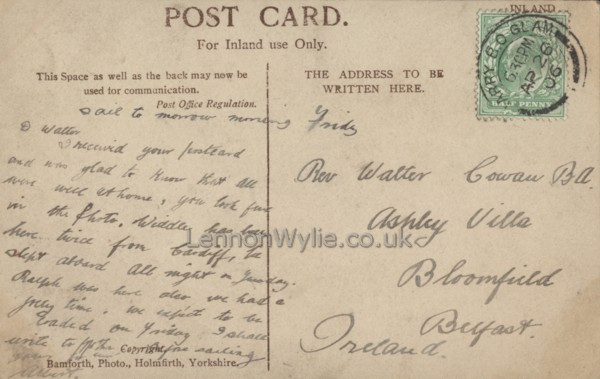 POST CARD.
For Inland use Only.
INLAND
This Space as well as the back may now be
used for communication.
Post Office Regulation.
THE ADDRESS TO BE
WRITTEN HERE.
HALF PENNY
BARRY S.O. GLAM
5.30 PM
AP 26
06
sail to morrow morning Friday
D Walter
I received your postcard
and was glad to know that all
were well at home, you look fine
in the Photo, Widdle has been
here twice from Cardiff, he
slept aboard all night on Sunday.
Ralph was here also we had a
jolly time, we expect to be
loaded on Friday I shall
write to before sailing
Your
Albert
Rev Walter Cowan BA.
Ashley Villa
Bloomfield
Belfast.
Ireland.
LennonWylie.co.uk
Copyright.
Bamforth, Photo., Holmfirth, Yorkshire.